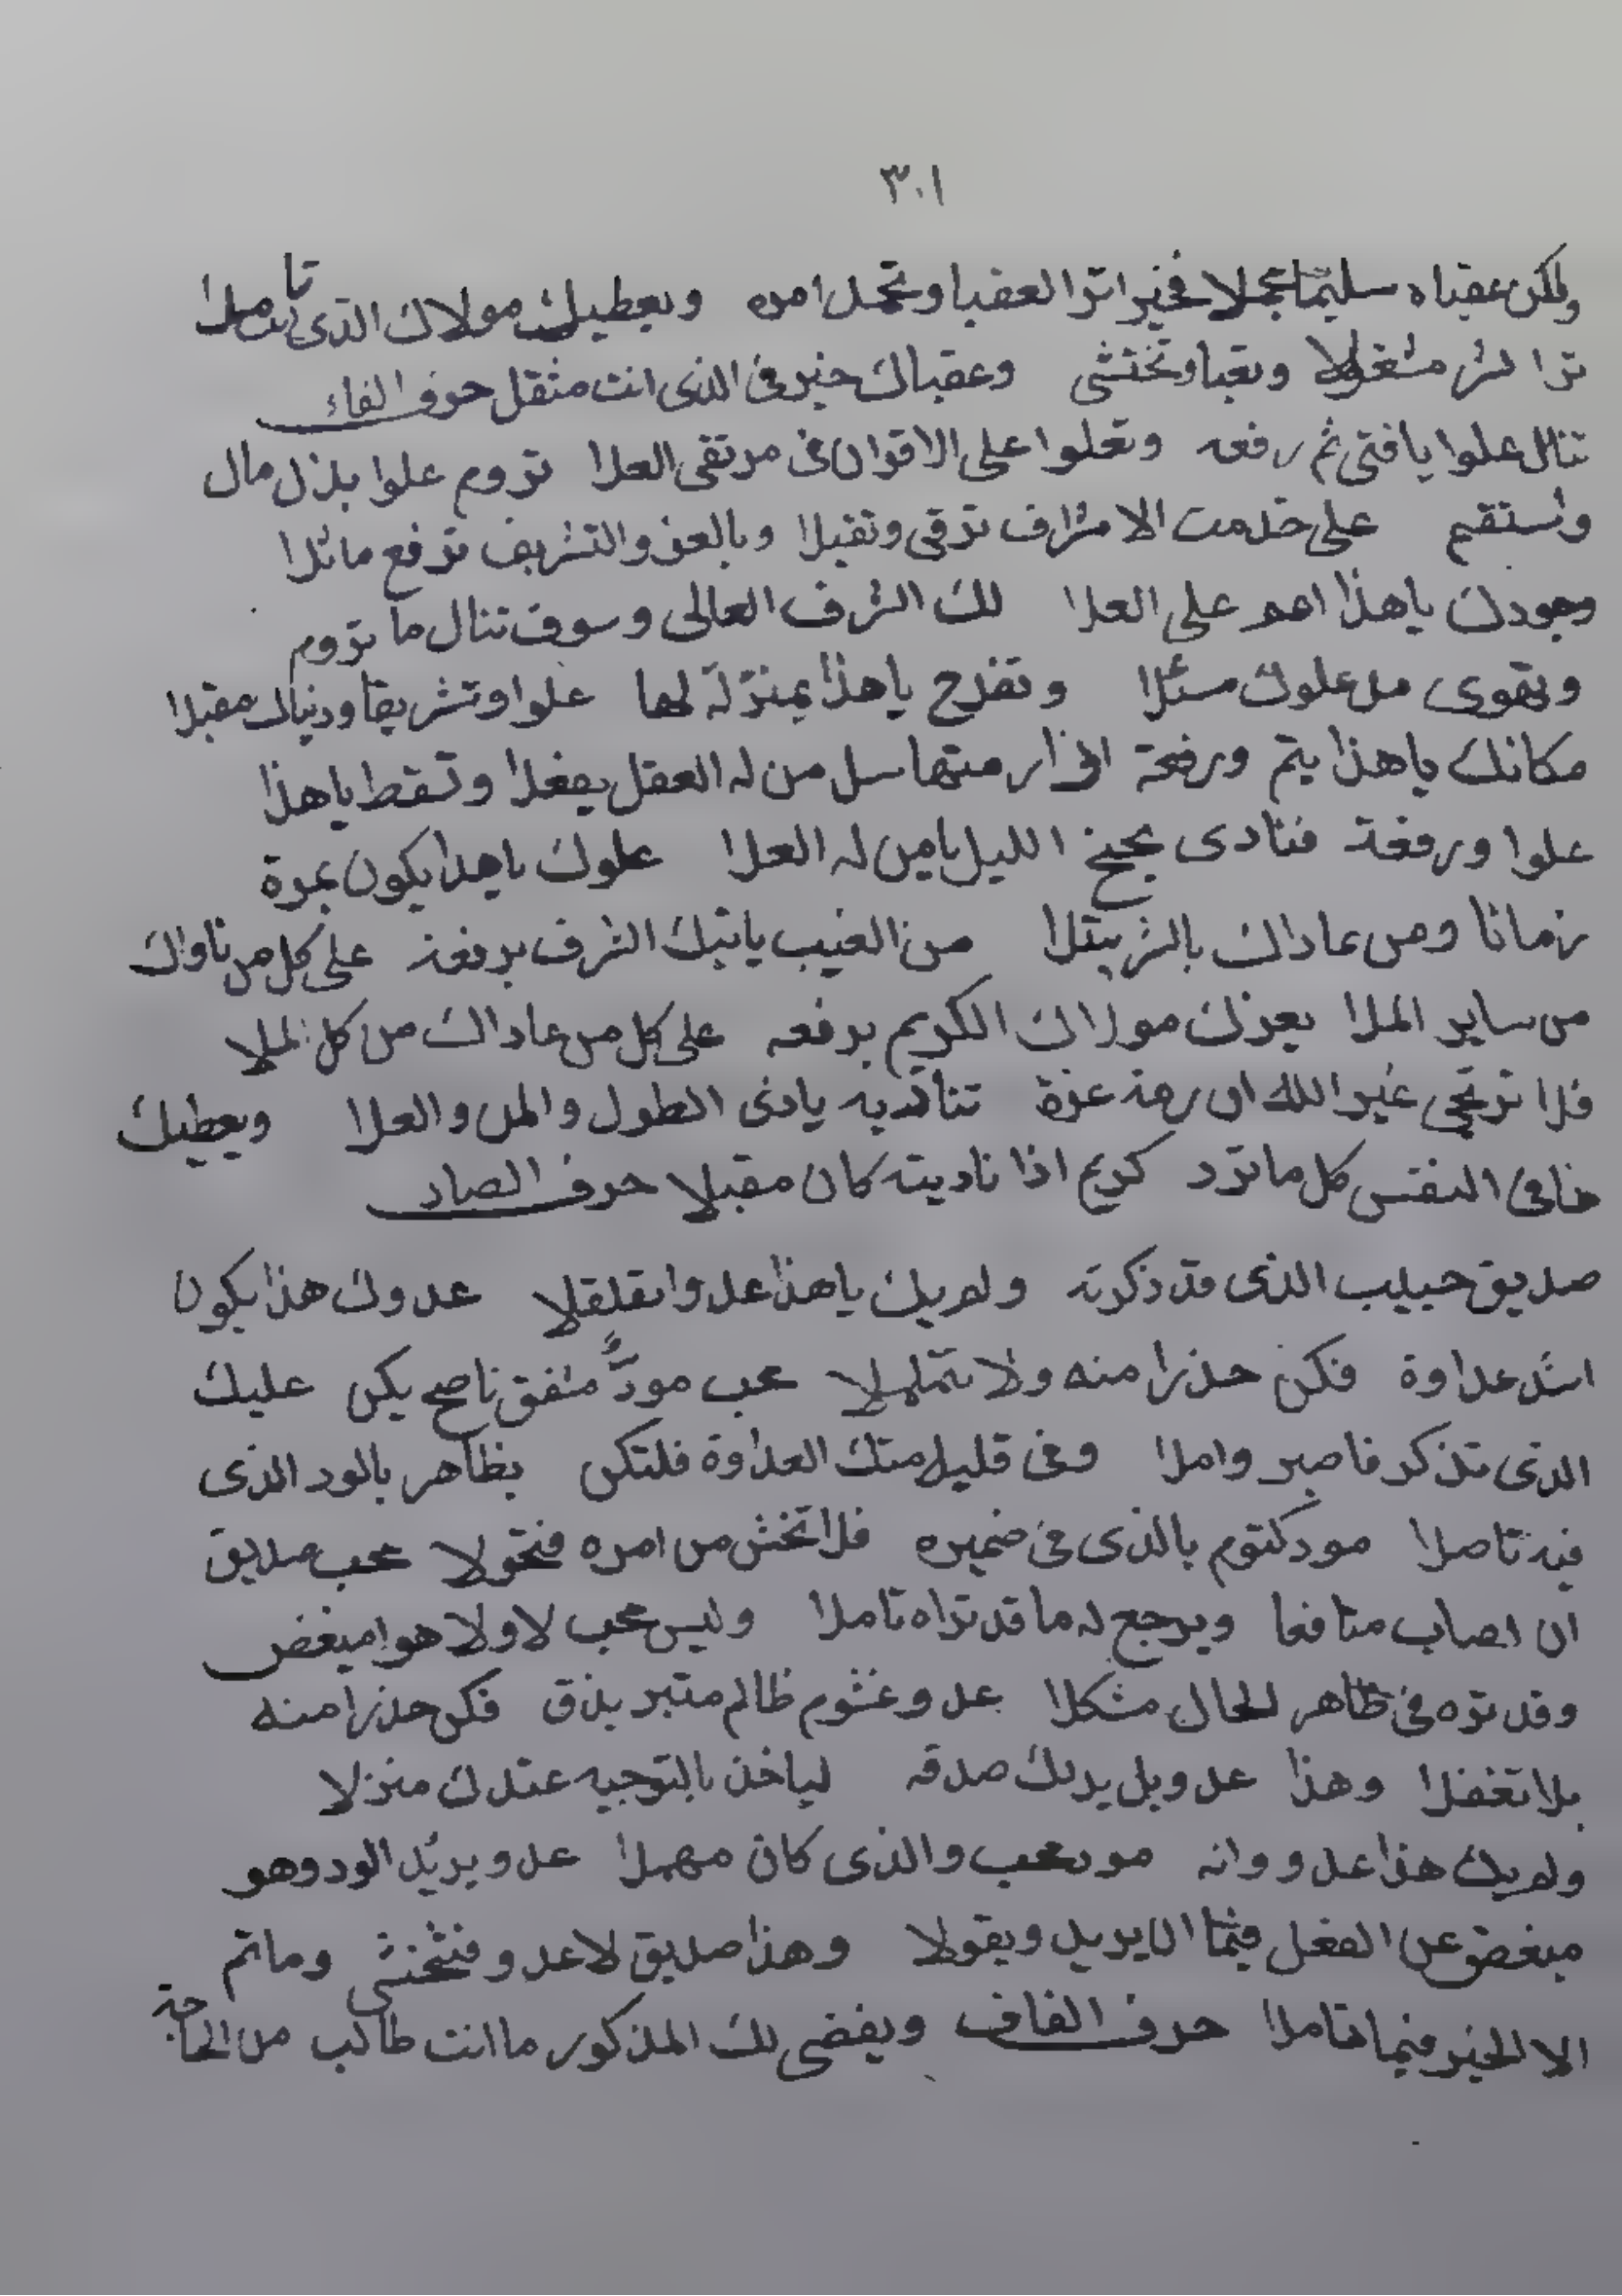 ٣٠١
ولكن عقباه سليما مجملا فخير اترا العقبا وتحمل امره ويعطيك مولاك الذى تاملا
ترا لشر مشغولا وتعبا وتختشى وعقباك خير فى الذى انت مثقل حرف الفاء
تنال علوا يا فتى ثم رفعه وتعلوا على الاقران فى مرتقى العلا تروم علوا بذل مال
واستقيم على خدمت الاشراف ترقى وتقبلا وبالعز والتشريف ترفع مائلا
وجودك ياهذا اهم على العلا لك الشرف العالى وسوف تنال ما تروم
وتقوى من علوك مسئلا وتفرح ياهذا بمنزلة لها علوا وتشريقا ودنياك مقبلا
مكانك ياهذا يتم ورفعة سل من له العقل يفعلا وتسقط ياهذا
علوا ورفعة فنادى بجنح الليل يامن له العلا علوك ياهذا يكون بمرة
زمانا ومن عاداك بالشر يبتلا من الغيب ياتيك الشرف برفعة على كل من ناواك
من ساير الملا يعزك مولاك الكريم برفعه على كل من عاداك من كل الملا
فلا ترتجى غير الله ان رمة عزة تناديه ياذى الطول والمن والعلا ويعطيك
خافى النفس كل ما ترد كريم اذا ناديته كان مقبلا حرف الصاد
صديق حبيب الذى قد ذكرته ولم يك ياهذا عدوا تقلقلا عدوك هذا يكون
اشد عداوة فكن حذرا منه ولا تتململا محب مود مشفق ناصح يكن عليك
الذى تذكر فاصبر واملا وفى قليل منك العداوة فلتكن يظاهر بالود الذى
فيه تاصلا مود كتوم بالذى فى ضميره فلا تخش من امره فتحولا محب صديق
ان اصاب منافعا ويرجع له ما قد تراه تاملا وليس محب لا ولا هو مبغض
وقد تره فى ظاهر الحال مشكلا عدو غشوم ظالم متبر بذق فكن حذرا منه
بلا تغفلا وهذا عدو بل يريك صدقه لياخذ بالتوجيه عندك منزلا
ولم يك هذا عدو وانه مود محب والذى كان مهملا عدو يريد الود وهو
مبغض عن الفعل فيما ان يريد ويقولا وهذا صديق لا عدو فتختشى وما تم
الا الخير فيما تاملا حرف القاف ويقضى لك المذكور ما انت طالب من الحاجة